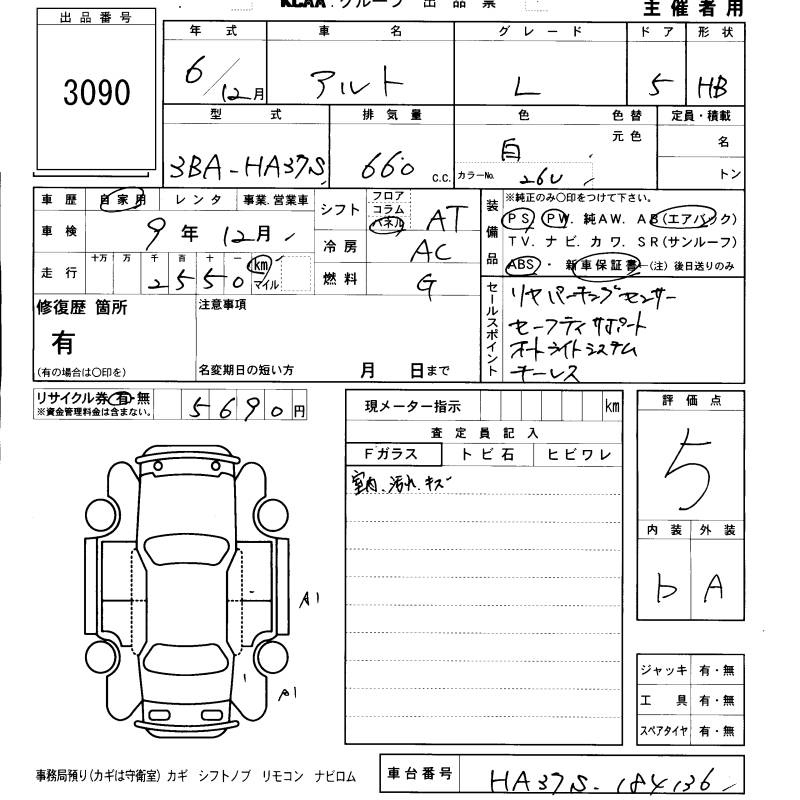 KCAA.グループ 出品票
主催者用
出品番号
3090
年式 車名 グレード ドア 形状
6/12月 アルト L 5 HB
型式 排気量 色 色替 定員・積載
元色 名
3BA-HA37S 660 C.C. 白
カラーNo. 26U トン
車歴 自家用 レンタ 事業.営業車
車検 9年 12月
走行 十万 万 千 百 十 一
2550 km マイル
シフト フロア コラム パネル AT
冷房 AC
燃料 G
装備品
※純正のみ〇印をつけて下さい。
PS. PW. 純AW. AB(エアバック)
TV. ナビ. カワ. SR(サンルーフ)
ABS・新車保証書(注)後日送りのみ
修復歴 箇所
有
(有の場合は〇印を)
注意事項
名変期日の短い方 月 日まで
セールスポイント
リヤパーキングセンサー
セーフティサポート
オートライトシステム
キーレス
リサイクル券 有・無 5690円
※資金管理料金は含まない。
現メーター指示 km
査定員記入
Fガラス トビ石 ヒビワレ
室内.汚れ.キズ
評価点
5
内装 外装
b A
A1
A1
ジャッキ 有・無
工具 有・無
スペアタイヤ 有・無
事務局預り(カギは守衛室) カギ シフトノブ リモコン ナビロム
車台番号 HA37S-184136